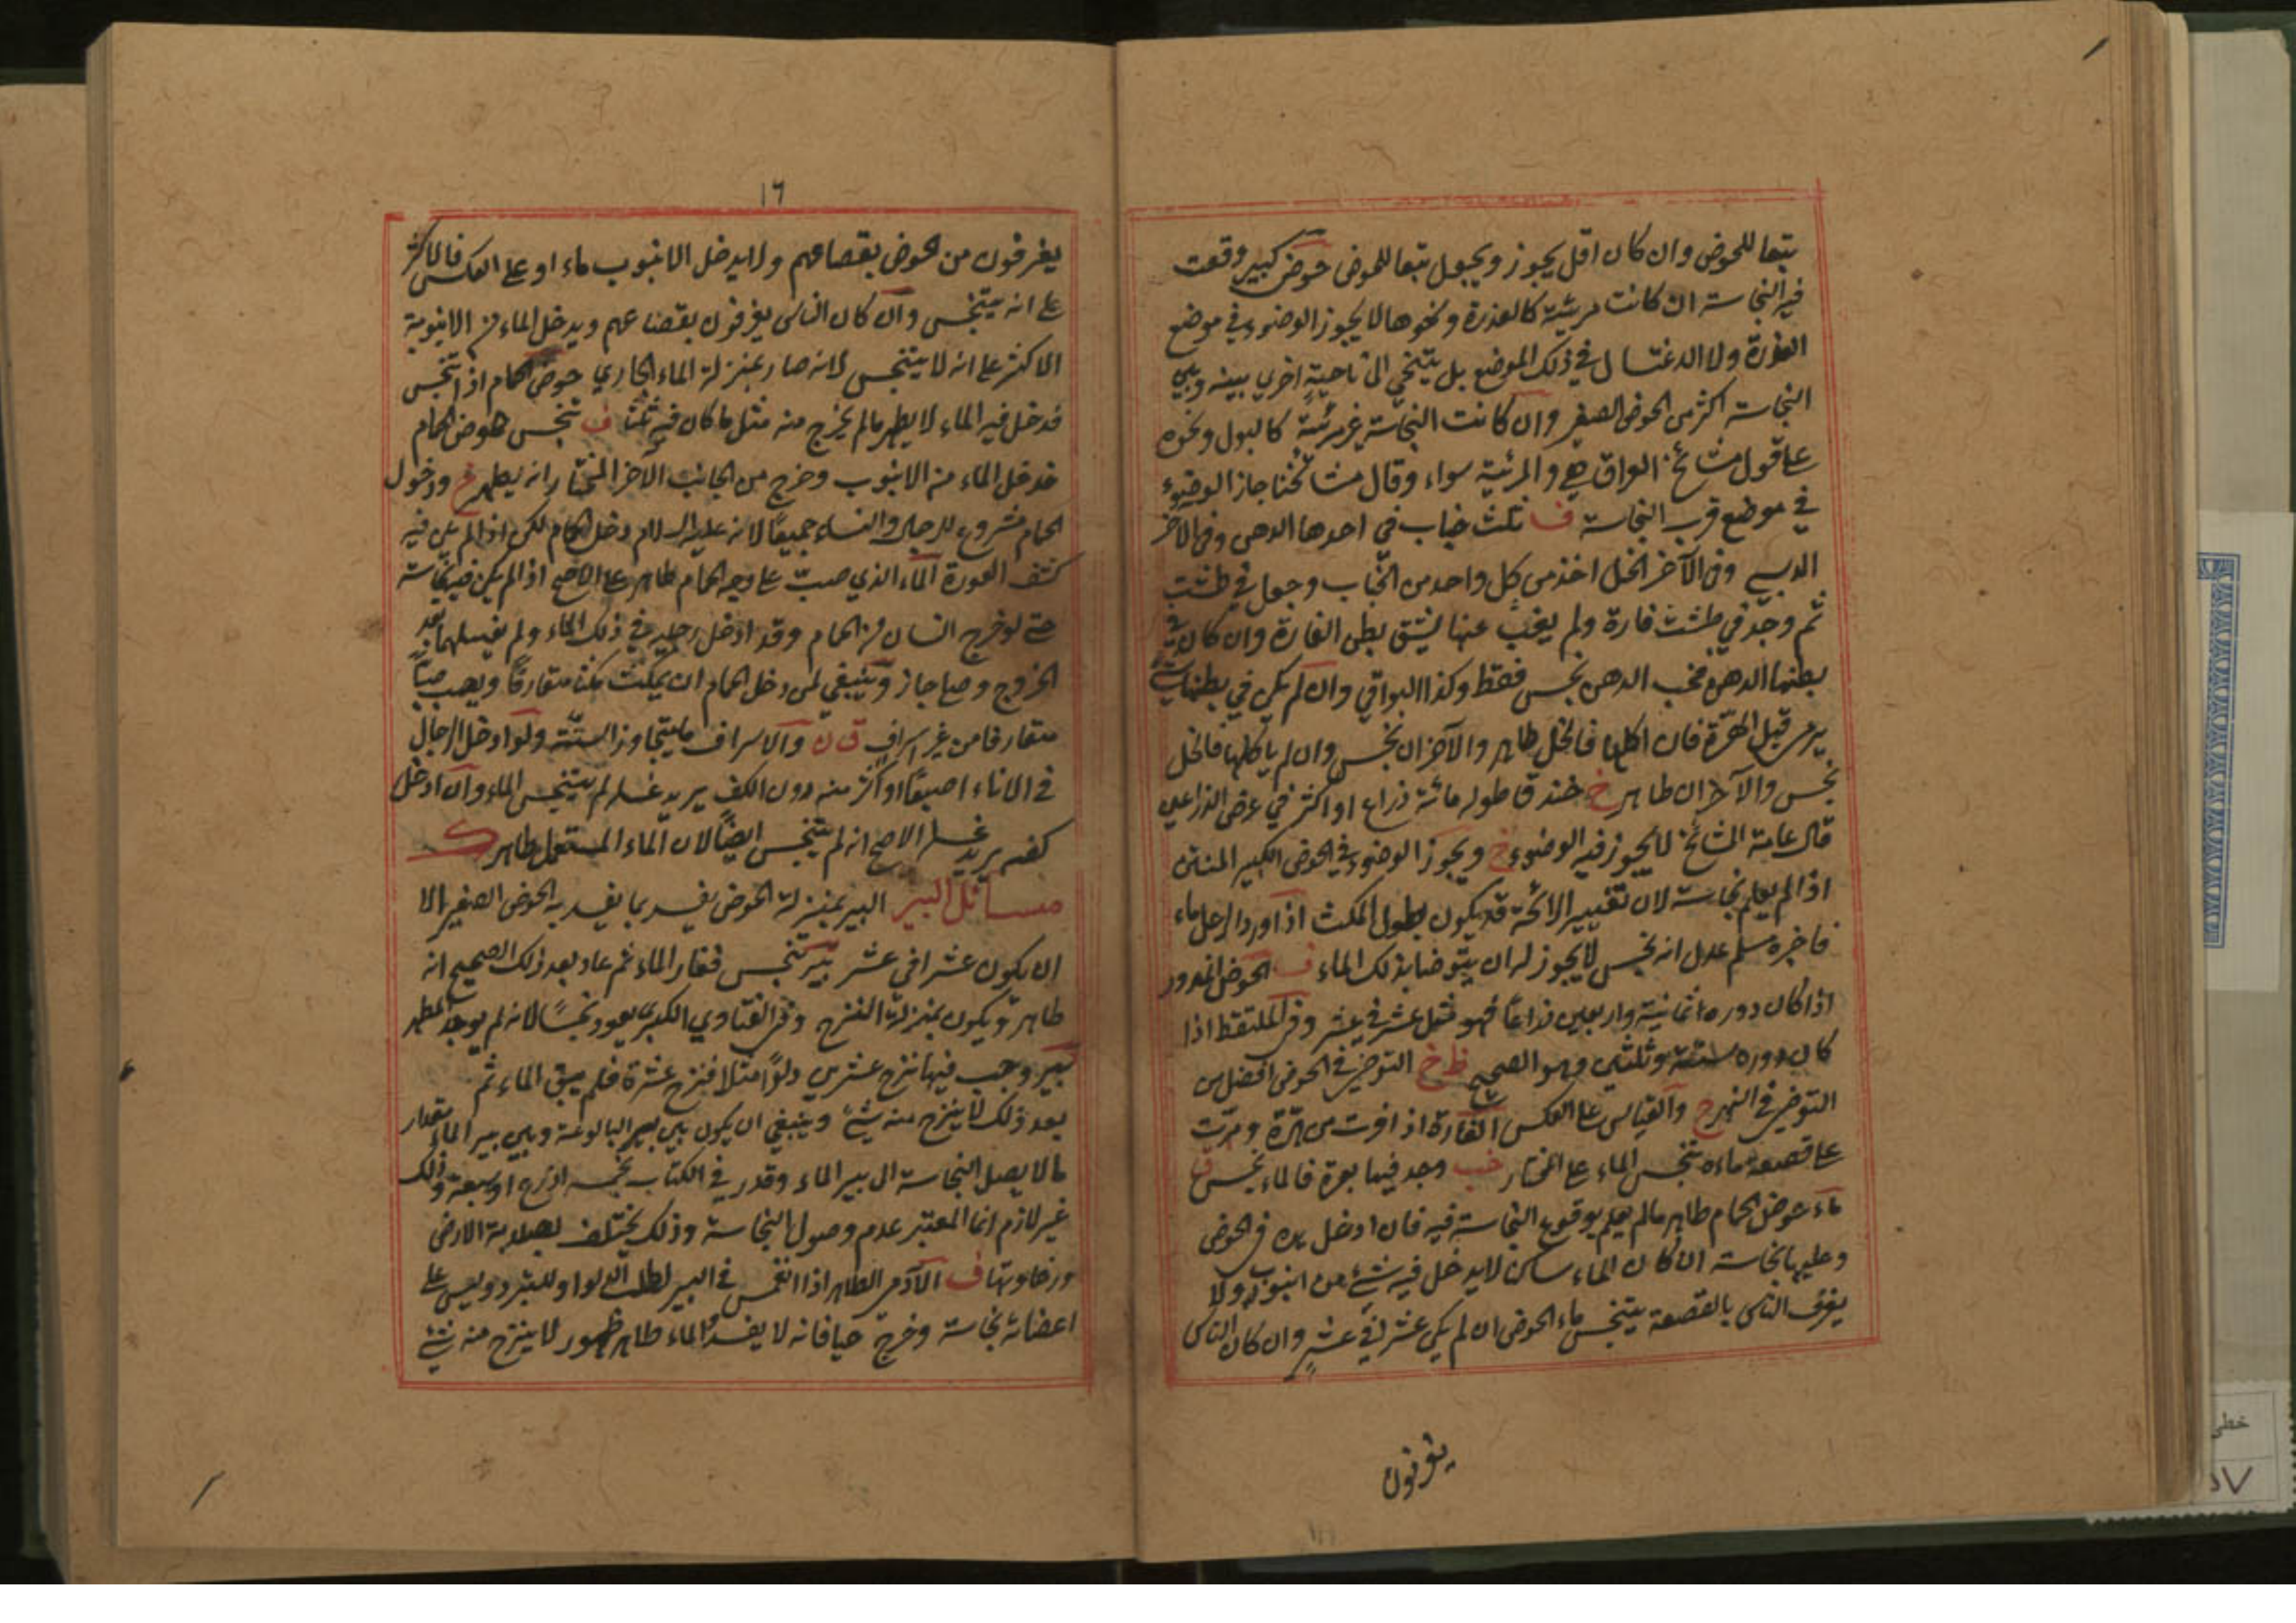 تبعا للحوض وان كان اقل يجوز ويجعل تبعا للحوض حوض كبير وقعت
فيه النجاسة ان كانت مرئية كالعذرة ونحوها لا يجوز الوضوء في موضع
العذرة ولا الاغتسال في ذلك الموضع بل يتنحي الى ناحية اخري بينه وبين
النجاسة اكثر من الحوض الصغير وان كانت النجاسة غير مرئية كالبول ونحوه
على قول مشائخ العراق هي والمرئية سواء وقال مشائخنا جاز الوضوء
في موضع قرب النجاسة ف ثلث خباب في احدها الدهن وفي الاخر
الدبس وفي الآخر الخل اخذ من كل واحد من الخباب وجعل في طشت
ثم وجد في طشت فارة ولم يعلم عنها يشق بطن الفارة وان كان في
بطنها الدهن فخب الدهن نجس فقط وكذا البواقي وان لم يكن في بطنها شئ
يرمى قبل الهرة فان اكلها فالخل طاهر والآخران نجس وان لم ياكلها فالخل
نجس والآخران طاهر خ خندق طوله مائة ذراع او اكثر في عرض الذراعين
قال عامة المشائخ لا يجوز فيه الوضوء خ ويجوز الوضوء في الحوض الكبير المنتن
اذا لم يعلم نجاسة لان تغيير الرائحة قد يكون بطول المكث اذا ورد الرجل ماء
فاخبره مسلم عدل انه نجس لا يجوز له ان يتوضا بذلك الماء ف الحوض المدور
اذا كان دوره ثمانية واربعين ذراعا فهو مثل عشر في عشر وفي الملتقط اذا
كان دوره ستة وثلثين وهو الصحيح ظ خ التوضي في الحوض افضل من
التوضي في النهر ج والقياس على العكس الفارة اذا فرت من هرة ومرت
على قصعة ماء تنجس الماء على المختار خب وجد فيها بعرة فالماء نجس ف
ماء حوض الحمام طاهر مالم يعلم بوقوع النجاسة فيه فان ادخل يده في الحوض
وعليها نجاسة ان كان الماء ساكن لا يدخل فيه شئ من انبوب ولا
يغرف الناس بالقصعة يتنجس ماء الحوض ان لم يكن عشر في عشر وان كان الناس
يغرفون
١٦
يغرفون من الحوض بقصاعهم ولا يدخل الانبوب ماء او على العكس فالاكثر
على انه يتنجس وان كان الناس يغرفون بقصاعهم ويدخل الماء من الانبوبة
الاكثر على انه لا يتنجس لانه صار بمنزلة الماء الجاري حوض الحمام اذا تنجس
فدخل فيه الماء لا يطهر مالم يخرج منه مثل ما كان فيه ثلثا ف تنجس حوض الحمام
فدخل الماء من الانبوب وخرج من الجانب الآخر المختار انه يطهر خ ودخول
الحمام مشروع للرجال والنساء جميعا لانه عليه السلام دخل الحمام لكن اذا لم يكن فيه
كشف العورة الماء الذي صب على وجه الحمام طاهر على الاصح اذا لم يكن فيه نجاسة
حتى لو خرج انسان من الحمام وقد ادخل رجليه في ذلك الماء ولم يغسلهما بعد
الخروج وصلى جاز وينبغي لمن دخل الحمام ان يمكث مكثا متعارفا ويصب صبا
متعارفا من غير اسراف ق ن والاسراف ما يتجاوز السنة ولو ادخل الرجال
في الاناء اصبعا او اكثر منه دون الكف يريد غسله لم يتنجس الماء وان ادخل
كفه يريد غسله الاصح انه لم يتنجس ايضا لان الماء المستعمل طاهر ك
مسائل البير البير بمنزلة الحوض يفسد بما يفسد به الحوض الصغير الا
ان يكون عشرا في عشر بير تنجس فغار الماء ثم عاد بعد ذلك الصحيح انه
طاهر ويكون بمنزلة النزح وفي الفتاوي الكبرى يعود نجسا لانه لم يوجد المطهر
بير وجب فيها نزح عشرين دلوا مثلا فنزح عشرة فلم يبق الماء ثم
بعد ذلك لا ينزح منه شئ وينبغي ان يكون بين بير البالوعة وبين بير الماء مقدار
ما لا يصل النجاسة الى بير الماء وقدر في الكتاب بخمسة اذرع او سبعة وذلك
غير لازم انما المعتبر عدم وصول النجاسة وذلك يختلف بصلابة الارض
ورخاوتها ف الآدمي الطاهر اذا انغمس في البير لطلب الدلو او للتبرد وليس على
اعضائه نجاسة وخرج حيا فانه لا يفسد والماء طاهر طهور لا ينزح منه شئ
خطي